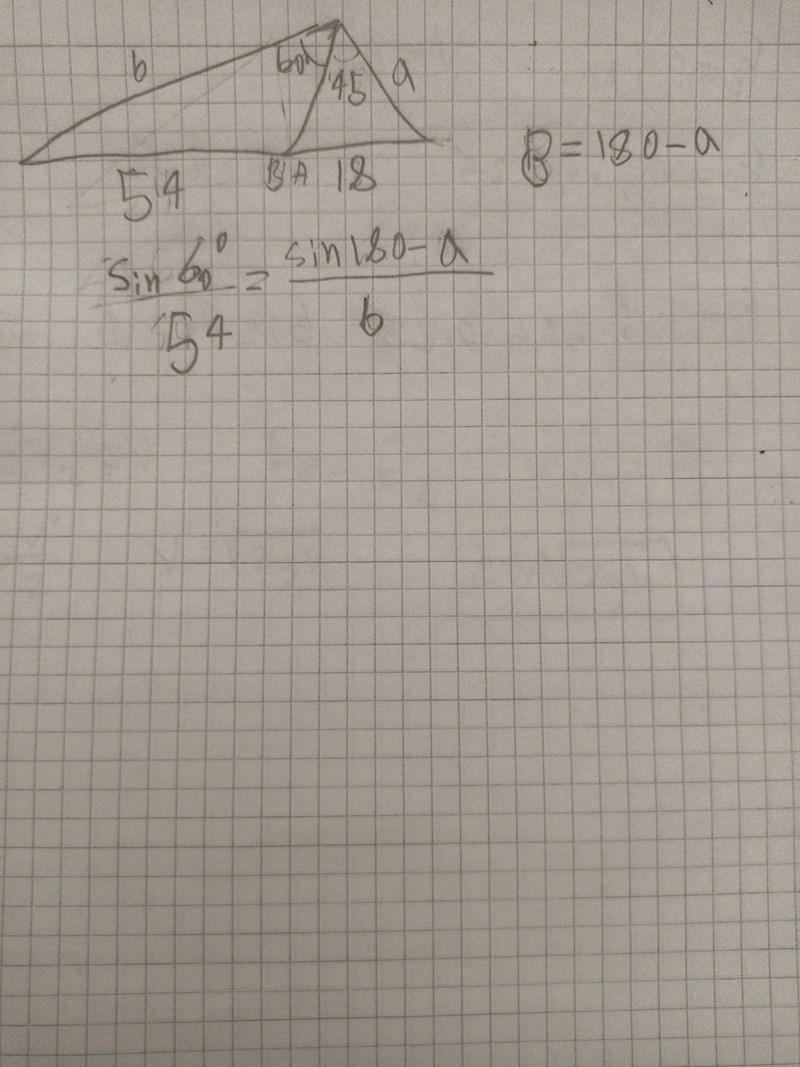 b 60° 45 a
54 B A 18
B = 180 - a
sin 60° / 54 = sin 180 - a / b